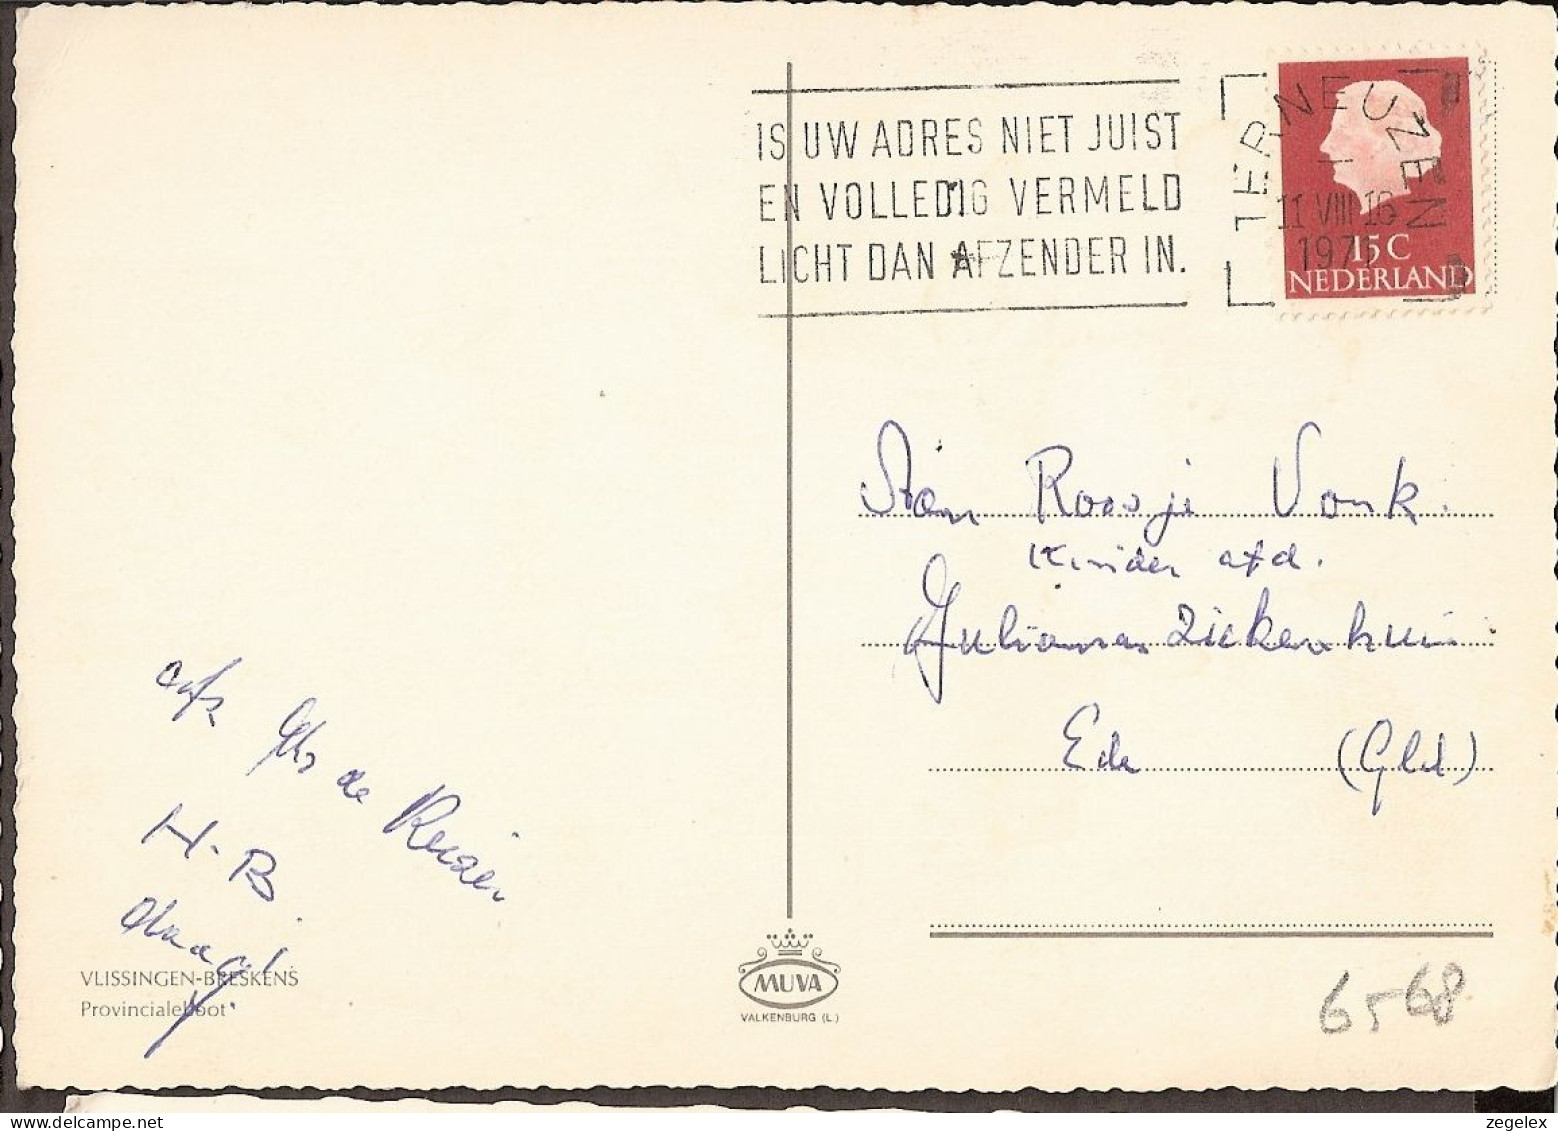 IS UW ADRES NIET JUIST
EN VOLLEDIG VERMELD
LICHT DAN AFZENDER IN.
TERNEUZEN
11 VIII 18
15 C
NEDERLAND
Aan Roosje Vonk.
Kinder afd.
Juliana Ziekenhuis
Ede (Gld)
afz
de
H-B
VLISSINGEN-BRESKENS
Provincialeboot
MUVA
VALKENBURG (L.)
65-68
zegelex